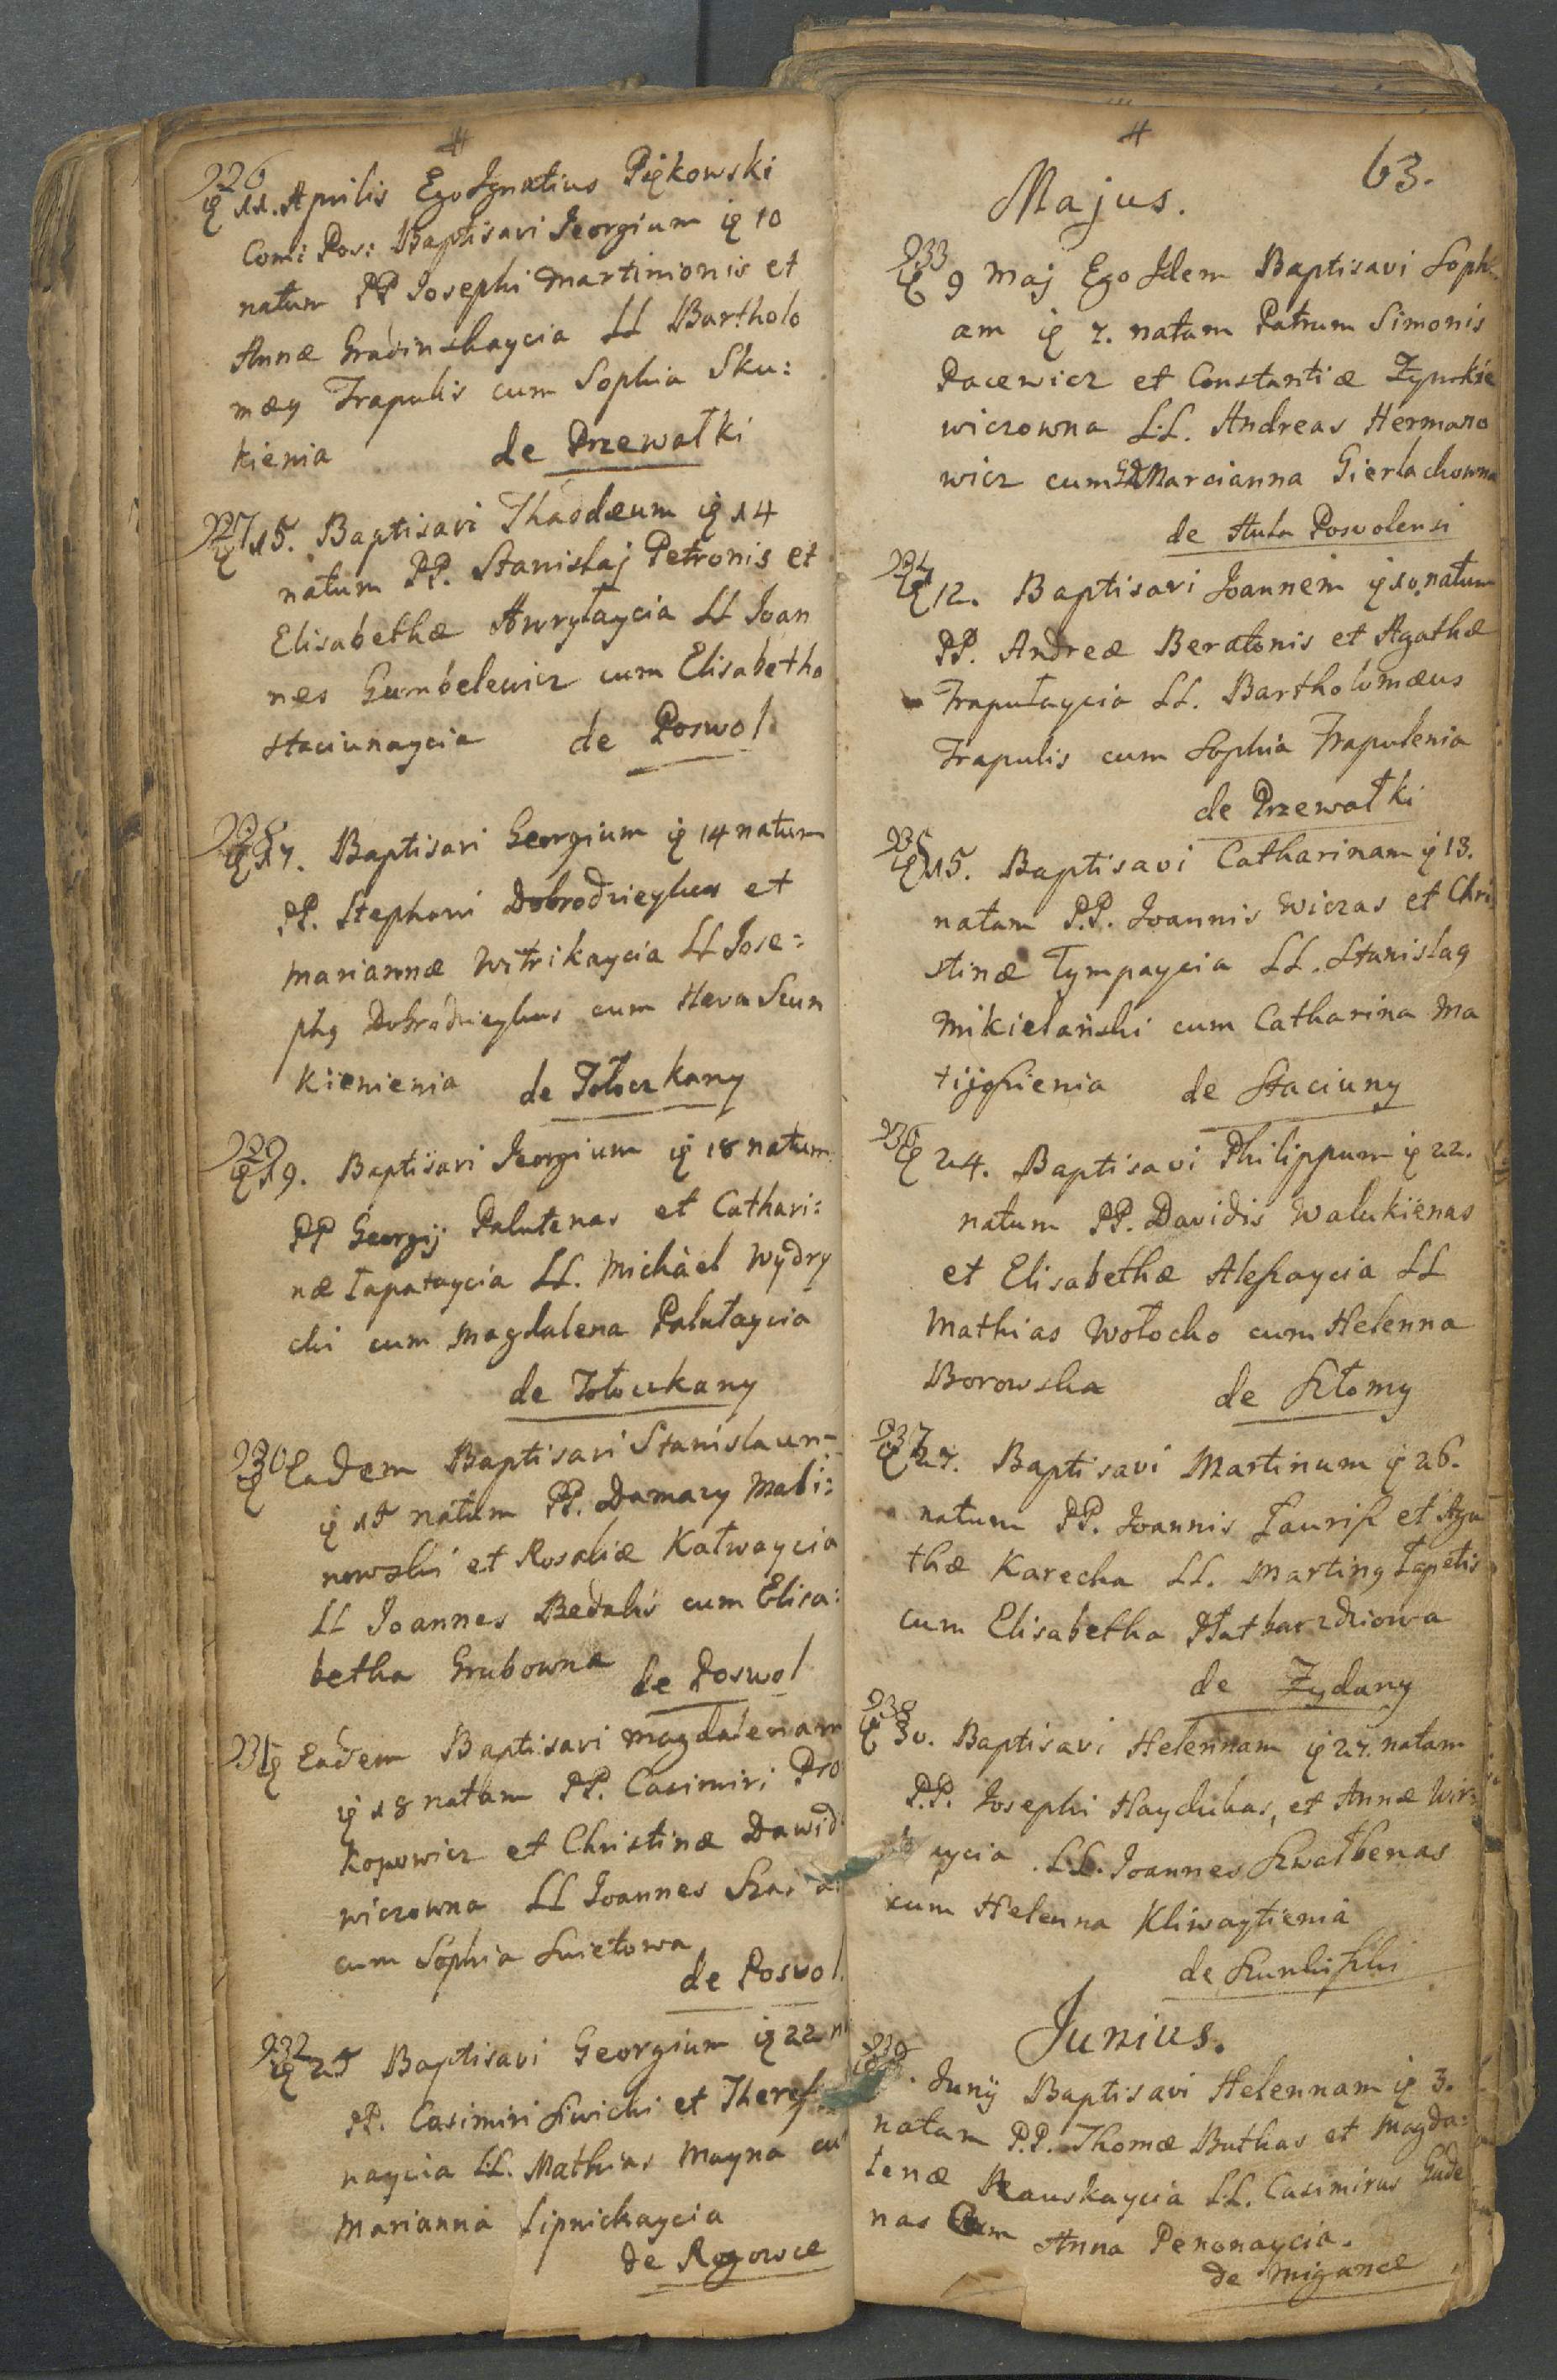 226
11. Aprilis Ego Ignatius Piękowski
Com: Pos: Baptisavi Georgium 10
natum PP Josephi Martinionis et
Annæ Gradinskaycia LL Bartholo
mæ9 Trapulis cum Sophia Sku:
kienia de Przewałki
227
15. Baptisavi Thadæum 14
natum PP. Stanislaj Petronis et
Elisabethæ Awryłaycia LL Joan
nes Gumbelewicz cum Elisabetha
Staciunaycia de Poswol
228
17. Baptisavi Georgium 14 natum
PP. Stephani Dobrodzieykas et
Mariannæ Witrikaycia LL Jose=
ph9 Dobrodzieykas cum Hæva
kienienia de Tołoczkany
229
19. Baptisavi Georgium 18 natum
PP Georgij Palutenas et Cathari:
næ Łapataycia LL. Michäel Wydry
chi cum Magdalena Palutaycia
de Tołoczkany
230
Eadem Baptisavi Stanislaum
natum PP. Damazy Mali:
nowski et Rosaliæ Katwaycia
LL Joannes Bedalis cum Elisa:
betha Grubowna de Poswol
231
Eadem Baptisavi Magdalenam
18 natam PP. Casimiri Pro
kopowicz et Christinæ Dawid
wiczowna LL Joannes
cum Sophia Swietowa
de Poswol.
232
25 Baptisavi Georgium 22
PP. Casimiri Siwicki et
naycia LL. Mathias Mayna
Marianna Lipnickaycia
de Rogowce
63.
Majus.
233
9 Maj Ego Idem Baptisavi Soph
am 7. natam Patrum Simonis
Pacewicz et Constantiæ Zynkie
wiczowna LL. Andreas Hermano
wicz cum Marcianna Gierlachowna
de Aula Poswolensi
234
12. Baptisavi Joannem 10. natum
PP. Andreæ Beratonis et Agathæ
Trapułaycia LL. Bartholomæus
Trapulis cum Sophia Trapulenia
de Przewałki
235
15. Baptisavi Catharinam 13.
natam P.P. Joannis Wiczas et Chri
stinæ Tympaycia LL. Stanisla9
Mikielański cum Catharina Ma
tijoßienia de Staciuny
236
24. Baptisavi Philippum 22.
natum PP. Davidis Walukienas
et Elisabethæ Aleßaycia LL
Mathias Wołocho cum Helenna
Borowska de Szłomy
237
27. Baptisavi Martinum 26.
natum PP. Joannis Lauriß et Aga
thæ Karecka LL. Martin9 Łapetis
cum Elisabetha
de Zydany
238
30. Baptisavi Helennam 27. natam
P.P. Josephi Haydukas, et Annæ
ycia LL. Joannes Szwałbenas
cum Helenna Kliwaytienia
de
Junius.
239
Junij Baptisavi Helennam 3.
natam P.P. Thomæ Butkas et Magda:
lenæ Rauskaycia LL. Casimirus Gude
nas Cum Anna Penonaycia.
de Migance